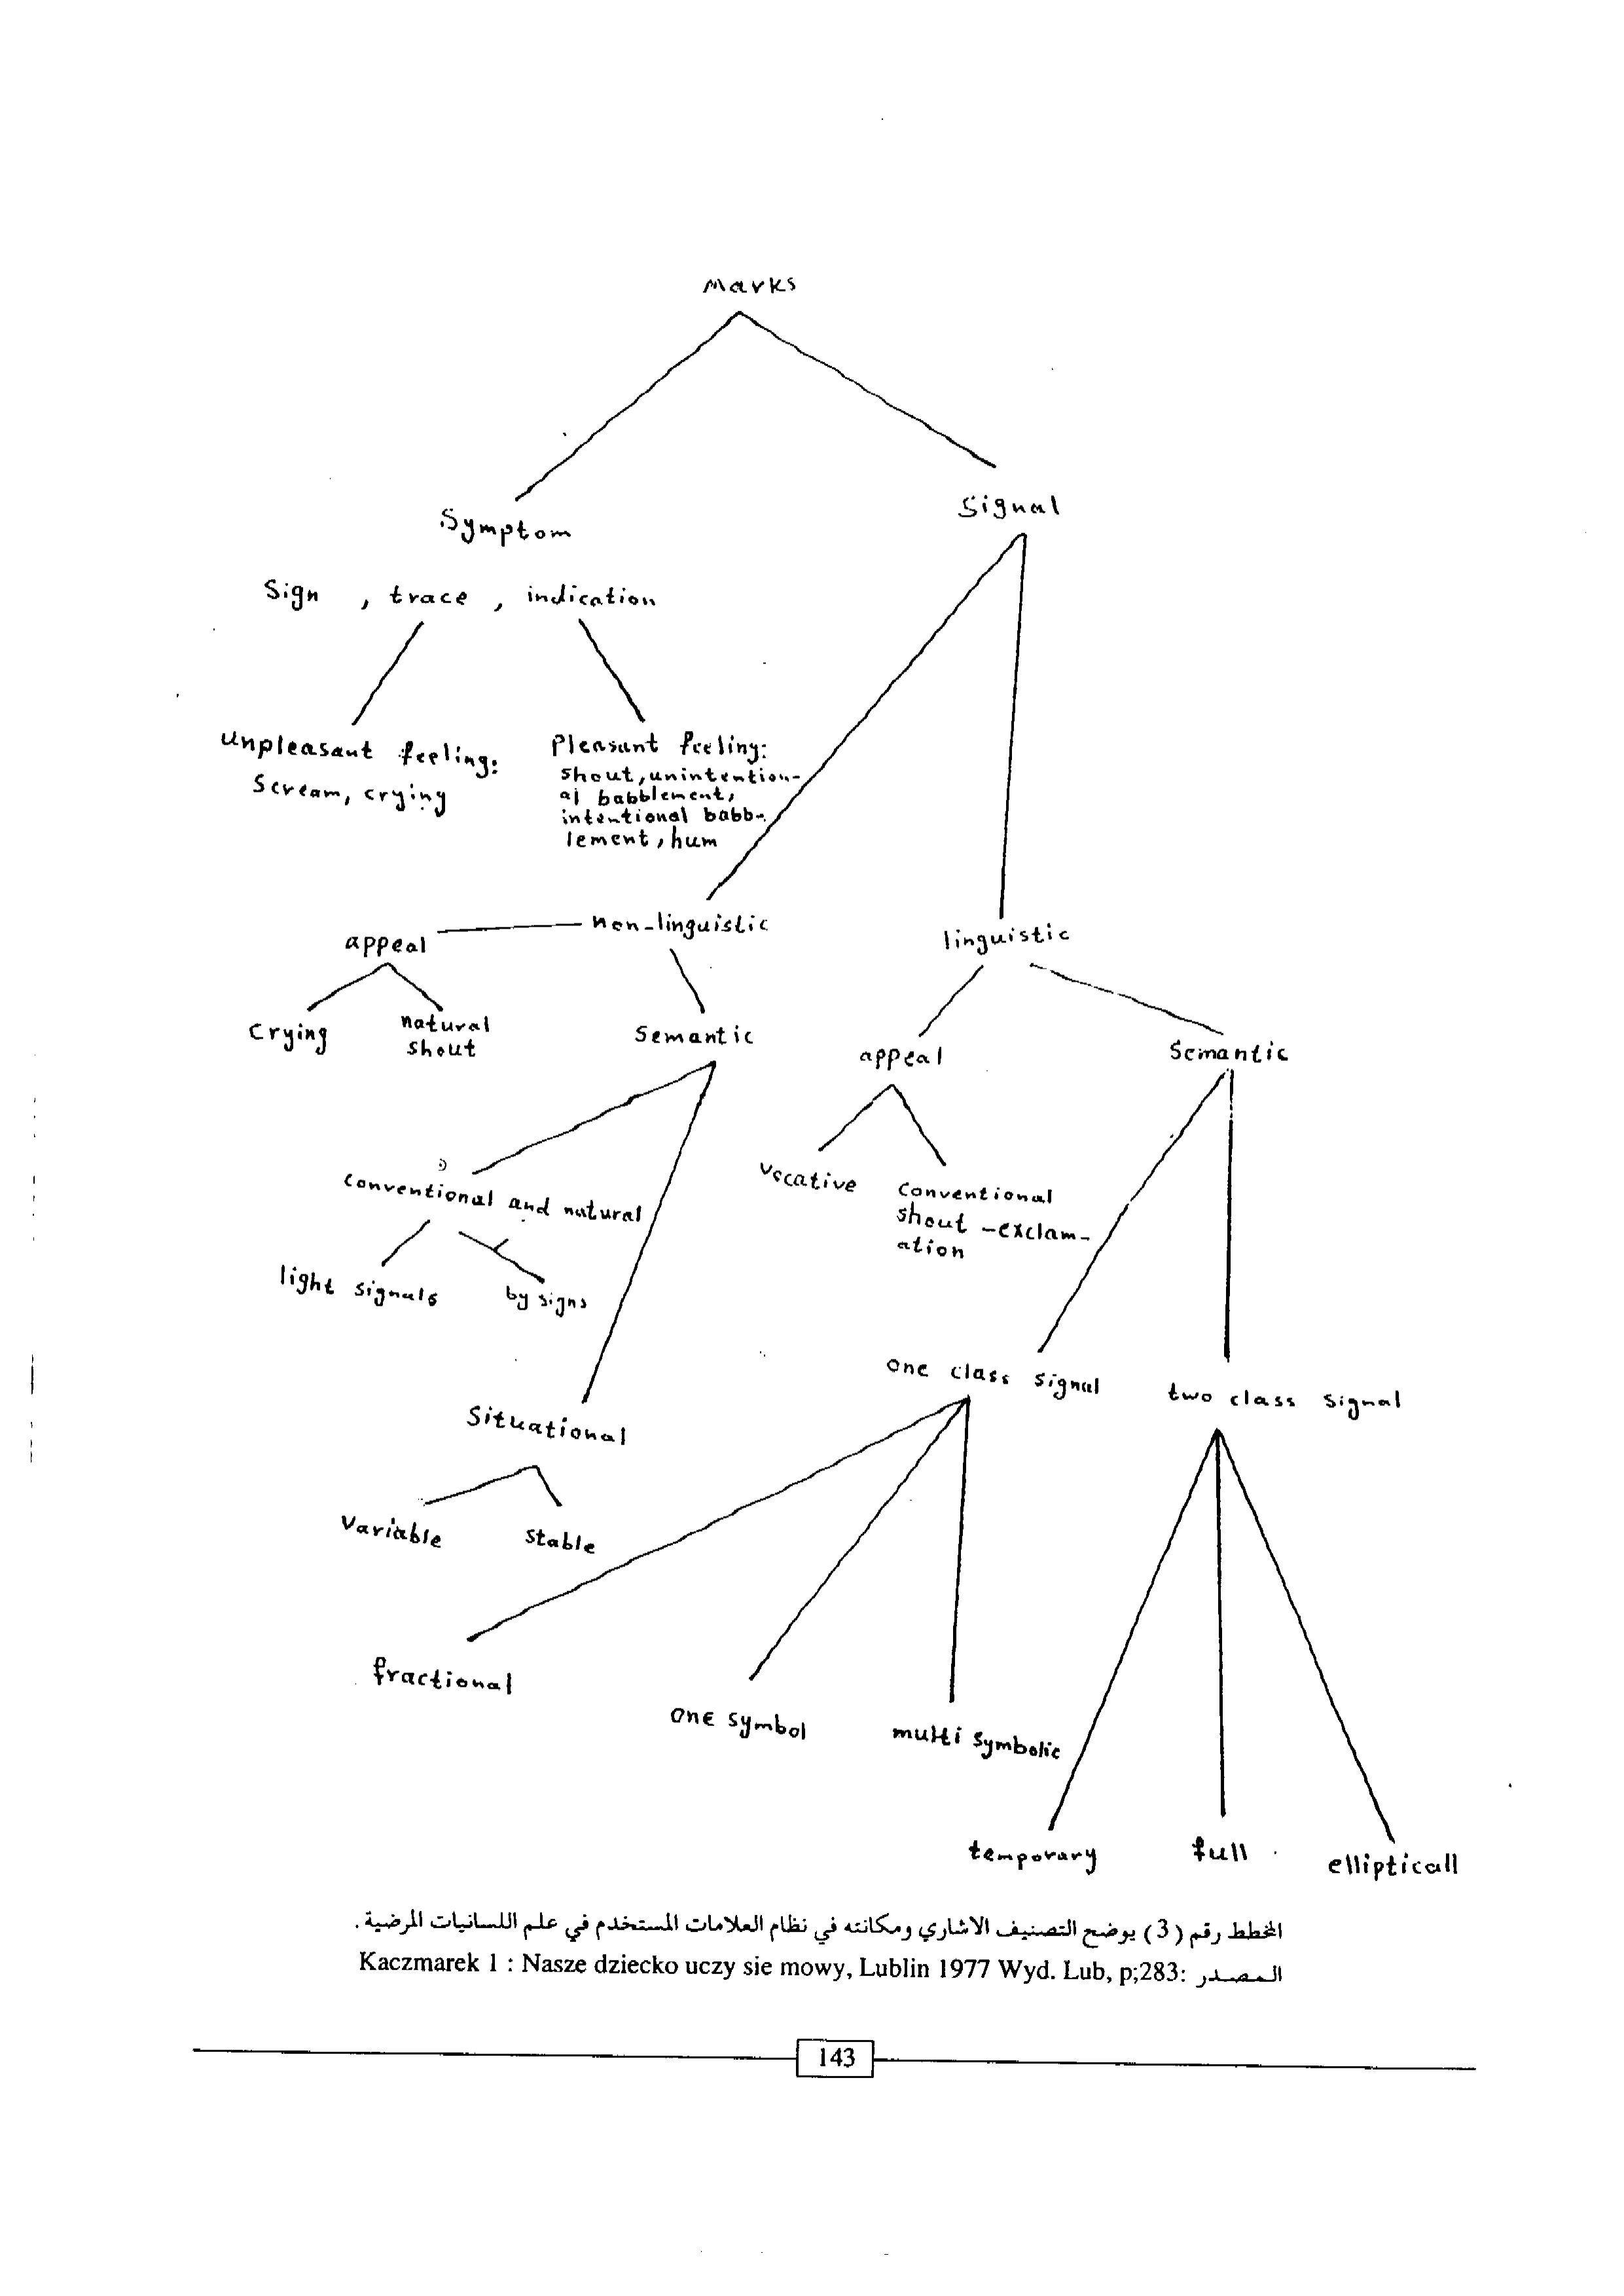 Marks
Symptom
Signal
Sign , trace , indication
unpleasant feeling:
Scream, crying
Pleasant feeling:
shout, unintention-
al babblement,
intentional babb-
lement, hum
non-linguistic
appeal
linguistic
Crying
natural
shout
Semantic
appeal
Semantic
conventional and natural
vocative
conventional
shout -exclam-
ation
light signals
by signs
one class signal
two class signal
Situational
Variable
stable
fractional
one symbol
multi symbolic
temporary
full
ellipticall
المخطط رقم ( 3 ) يوضح التصنيف الاشاري ومكانته في نظام العلامات المستخدم في علم اللسانيات المرضية .
المصدر :Kaczmarek 1 : Nasze dziecko uczy sie mowy, Lublin 1977 Wyd. Lub, p;283
143